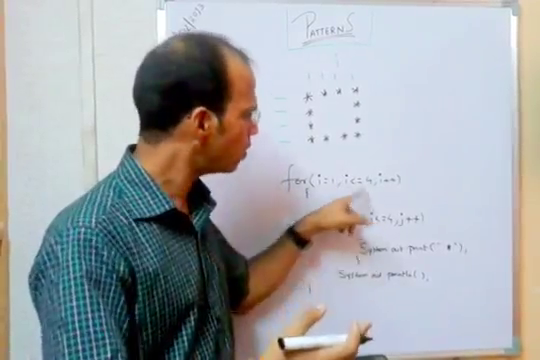 PATTERNS
* * * *
* *
* *
* * * *
for(i=1, i<=4, i++)
{
j<=4, j++)
System out print(" * "),
}
System out println( ),
}